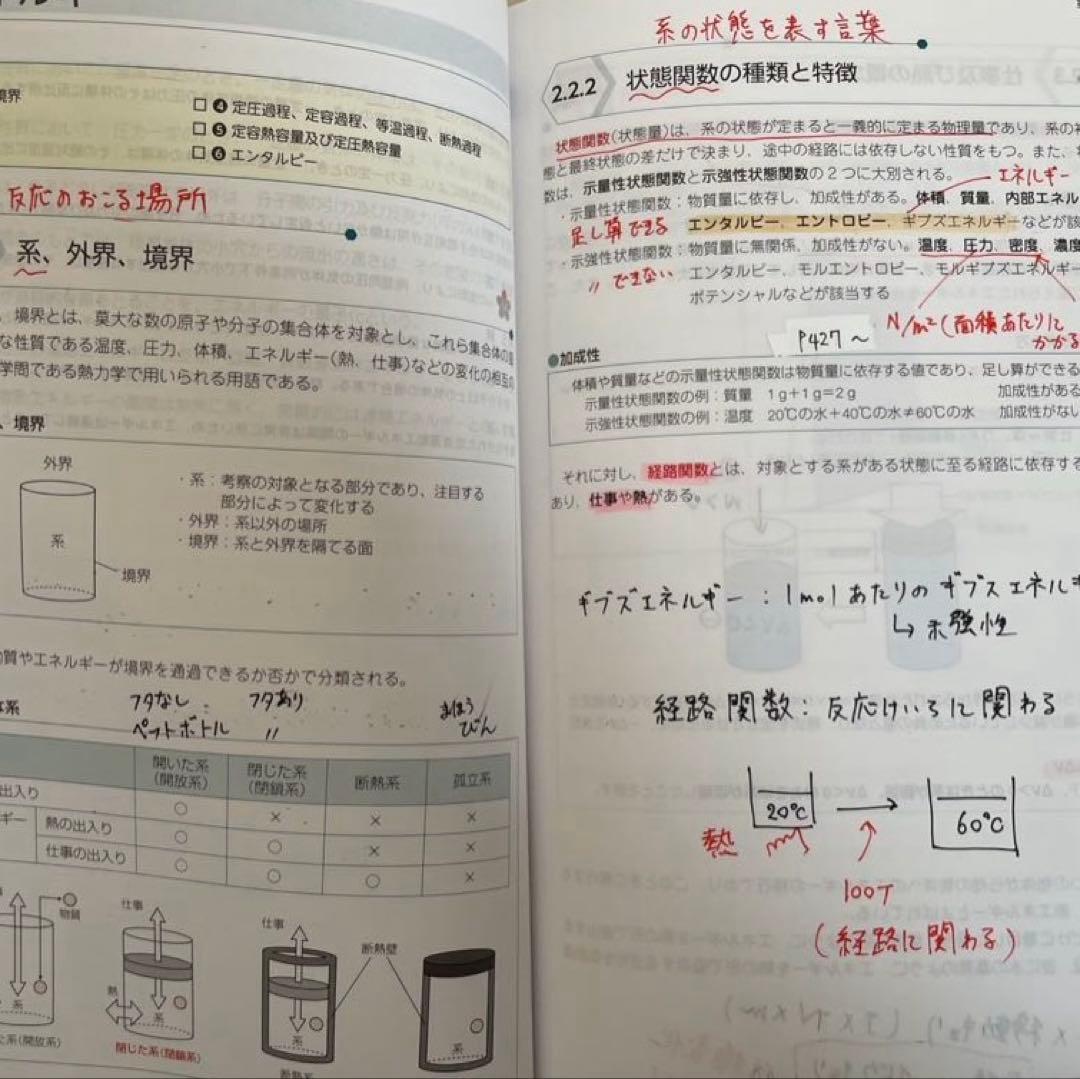 境界
□ ❹ 定圧過程、定容過程、等温過程、断熱過程
□ ❺ 定容熱容量及び定圧熱容量
□ ❻ エンタルピー
反応のおこる場所
系、外界、境界
、境界とは、莫大な数の原子や分子の集合体を対象とし、これら集合体の
な性質である温度、圧力、体積、エネルギー(熱、仕事)などの変化の相互の
学問である熱力学で用いられる用語である。
、境界
外界
系
境界
・系：考察の対象となる部分であり、注目する
部分によって変化する
・外界：系以外の場所
・境界：系と外界を隔てる面
質やエネルギーが境界を通過できるか否かで分類される。
系
フタなし フタあり まほう
ペットボトル 〃 びん
開いた系 閉じた系 断熱系 孤立系
(開放系) (閉鎖系)
出入り ○ × × ×
ギー 熱の出入り ○ ○ × ×
仕事の出入り ○ ○ ○ ×
物質
系
た系(開放系)
仕事
熱
系
閉じた系(閉鎖系)
仕事
系
断熱系
断熱壁
系
系の状態を表す言葉
2.2.2 状態関数の種類と特徴
状態関数(状態量)は、系の状態が定まると一義的に定まる物理量であり、系の
態と最終状態の差だけで決まり、途中の経路には依存しない性質をもつ。また、
数は、示量性状態関数と示強性状態関数の2つに大別される。
エネルギー
・示量性状態関数：物質量に依存し、加成性がある。体積、質量、内部エネル
足し算できる
エンタルピー、エントロピー、ギブズエネルギーなどが該
・示強性状態関数：物質量に無関係、加成性がない。温度、圧力、密度、濃度
〃 できない
エンタルピー、モルエントロピー、モルギブズエネルギー
ポテンシャルなどが該当する
P427～
N/m²(面積あたりに
かかる
●加成性
体積や質量などの示量性状態関数は物質量に依存する値であり、足し算ができる
示量性状態関数の例：質量 1g+1g=2g 加成性がある
示強性状態関数の例：温度 20℃の水+40℃の水≠60℃の水 加成性がない
それに対し、経路関数とは、対象とする系がある状態に至る経路に依存する
あり、仕事や熱がある。
ギブズエネルギー：1molあたりのギブズエネルギ
↳示強性
経路関数：反応けいろに関わる
20℃ → 60℃
熱
100T
(経路に関わる)